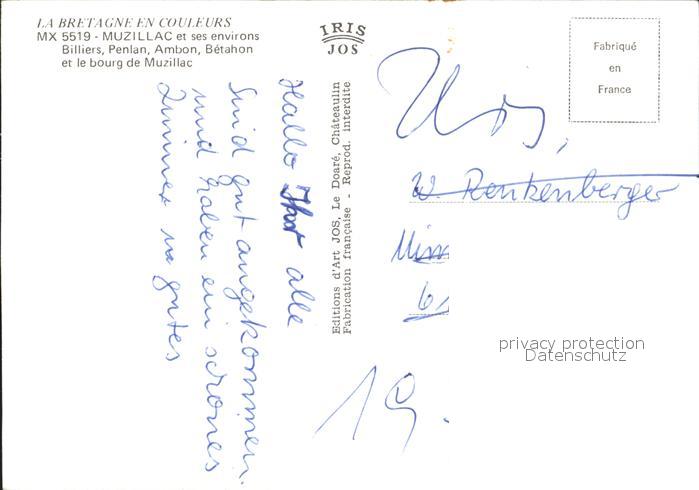 LA BRETAGNE EN COULEURS
MX 5519 - MUZILLAC et ses environs
Billiers, Penlan, Ambon, Bétahon
et le bourg de Muzillac
IRIS
JOS
Fabriqué
en
France
Editions d'Art JOS, Le Doaré, Châteaulin
Fabrication française - Reprod. interdite
Hallo alle
Sind gut angekommen.
und haben ein schönes
Zimmer gutes
W. Renkenberger
privacy protection
Datenschutz